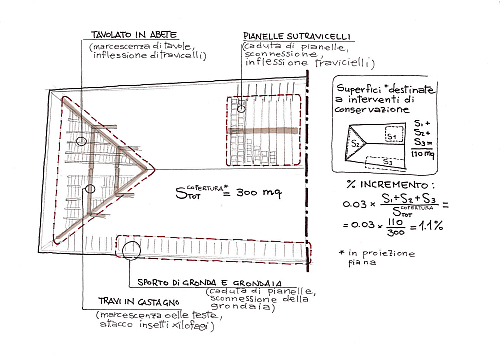 TAVOLATO IN ABETE
(marcescenza di tavole,
inflessione di travicelli)
PIANELLE SU TRAVICELLI
(caduta di pianelle,
sconnessione,
inflessione travicielli)
Superfici *destinate
a interventi di
conservazione
S1
S2
S3
S1 +
S2 +
S3 =
110 mq
S TOT COPERTURA* = 300 mq
% INCREMENTO:
0.03 × S1+S2+S3 / S TOT COPERTURA =
= 0.03 × 110 / 300 = 1.1%
* in proiezione
piana
SPORTO DI GRONDA E GRONDAIA
(caduta di pianelle,
sconnessione della
grondaia)
TRAVI IN CASTAGNO
(marcescenza delle teste,
attacco insetti xilofagi)